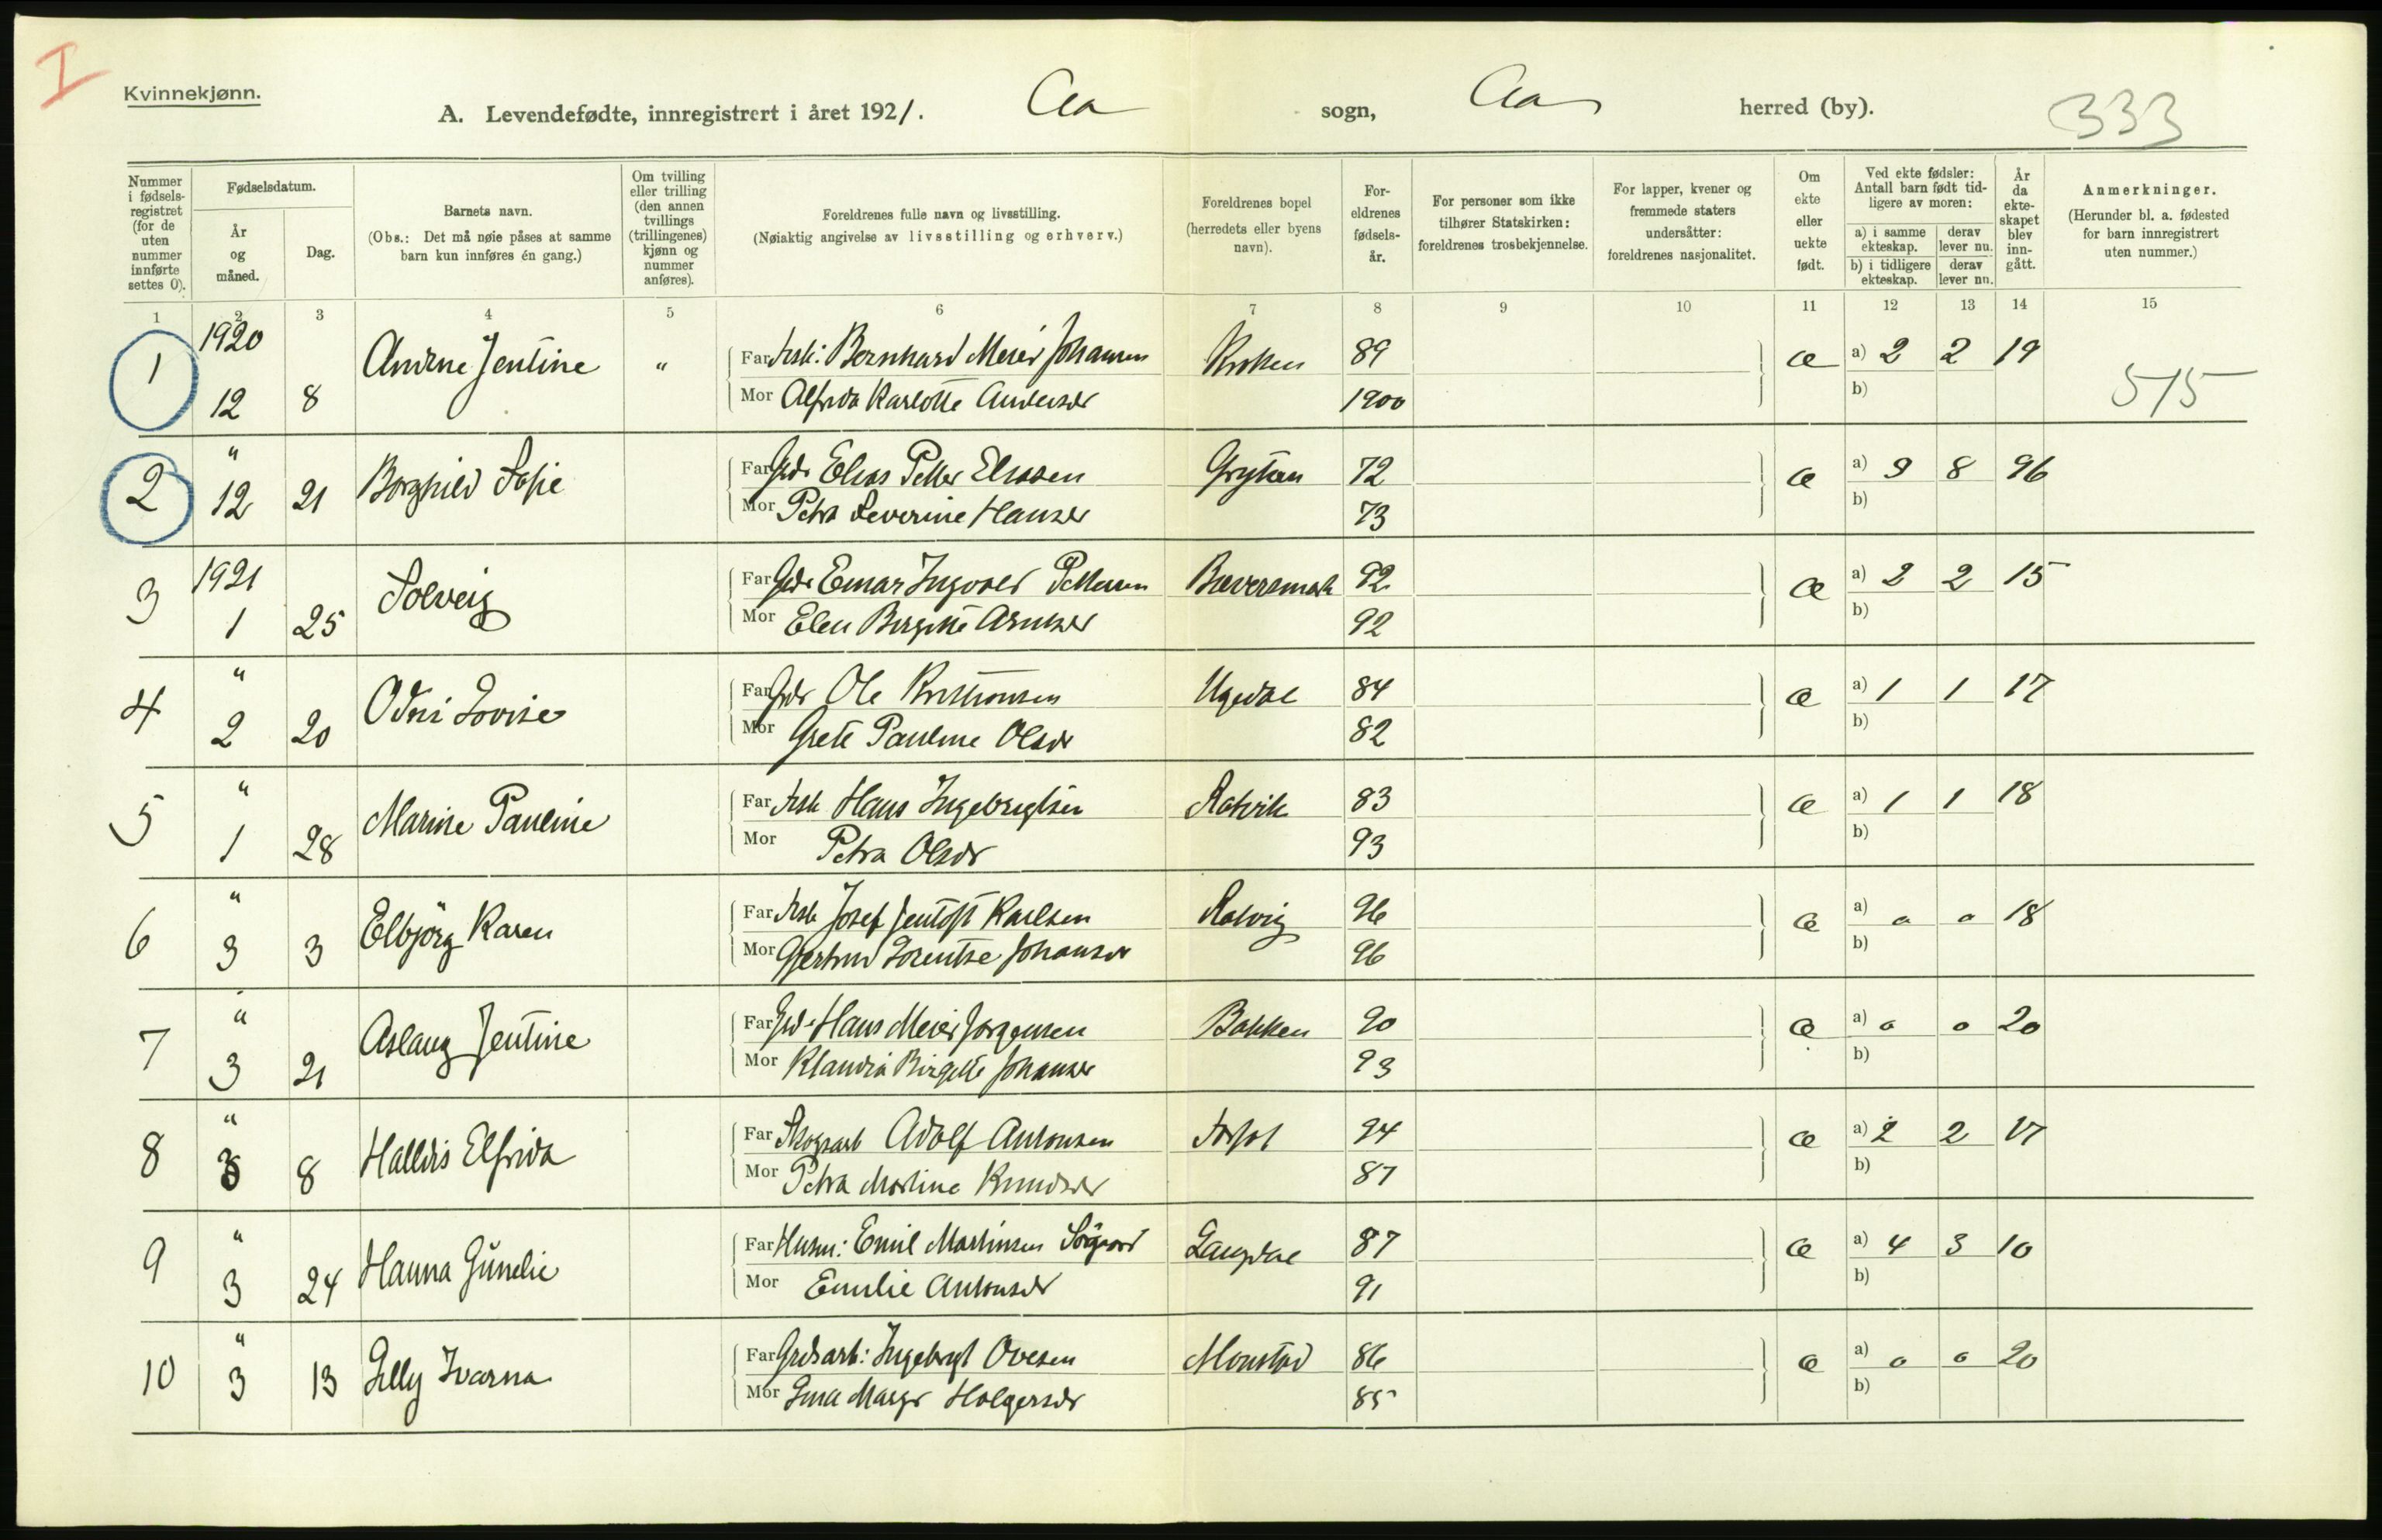 I
Kvinnekjønn.
A. Levendefødte, innregistrert i året 1921. Aa sogn, Aa herred (by). 333
Nummer i fødselsregistret (for de uten nummer innførte settes 0).
Fødselsdatum.
År og måned.
Dag.
Barnets navn.
(Obs.: Det må nøie påses at samme barn kun innføres én gang.)
Om tvilling eller trilling (den annen tvillings (trillingenes) kjønn og nummer anføres).
Foreldrenes fulle navn og livsstilling.
(Nøiaktig angivelse av livsstilling og erhverv.)
Foreldrenes bopel (herredets eller byens navn).
Foreldrenes fødselsår.
For personer som ikke tilhører Statskirken: foreldrenes trosbekjennelse.
For lapper, kvener og fremmede staters undersåtter: foreldrenes nasjonalitet.
Om ekte eller uekte født.
Ved ekte fødsler: Antall barn født tidligere av moren:
a) i samme ekteskap. derav lever nu.
b) i tidligere ekteskap. derav lever nu.
År da ekteskapet blev inngått.
Anmerkninger.
(Herunder bl. a. fødested for barn innregistrert uten nummer.)
1 2 3 4 5 6 7 8 9 10 11 12 13 14 15
1 1920 12 8 Jentine " Far Fisk: Bernhard Meier Johansen Kroken 89 æ a) 2 2 19
Mor Alfrida Karlotte Andersdr 1900 b) 515
2 " 12 21 Borghild Sofie Far Grdr Elias Petter Eliassen Grytan 72 æ a) 9 8 96
Mor Petra Severine Hansdr 73 b)
3 1921 1 25 Solveig Far Grdr Einar Ingvald Pettersen Bæversmark 92 æ a) 2 2 15
Mor Elen Birgitte Arntsdr 92 b)
4 " 2 20 Odni Lovise Far Grdr Ole Kristiansen 84 æ a) 1 1 17
Mor Grete Pauline Olsdr 82 b)
5 " 1 28 Marine Pauline Far Fisk Hans Ingebrigtsen 83 æ a) 1 1 18
Mor Petra Olsdr 93 b)
6 " 3 3 Elbjörg Karen Far Fisk Josef Jentoft Karlsen 96 æ a) 0 0 18
Mor Gjertrud Lorentse Johansdr 96 b)
7 " 3 21 Aslaug Jentine Far Grdr Hans Meier Jørgensen Bakken 90 æ a) 0 0 20
Mor Klaudia Birgitte Johansdr 93 b)
8 " 3 8 Halldis Elfrida Far Skogsarb Adolf Antonsen 94 æ a) 2 2 17
Mor Petra Martine Knudsdr 87 b)
9 " 3 24 Hanna Gunelie Far Husm: Emil Martinsen Sörgaard Langdal 87 æ a) 4 3 10
Mor Emilie Antonsdr 91 b)
10 " 3 13 Lilly Ivarna Far Grdsarb: Ingebrigt Ovesen Monstad 86 æ a) 0 0 20
Mor Margr Holgersdr 85 b)